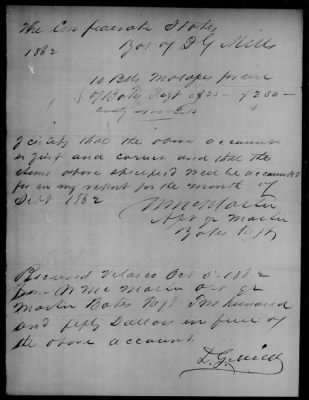 The Confederate States
1862 Bot of D G Mills
10 Bbls Molasses for use
of Bates Regt @ 25 — $250 —
I certify that the above account
is just and correct and that the
items above specified will be accounted
for in my report for the month of
Sept 1862
W McMaster
Act qr Master
Bates Regt
Received Velasco Oct 5th 1862
from W Mc Master act qr
Master Bates Regt Two hundred
and fifty Dollars in full of
the above account.
D. G. Mills